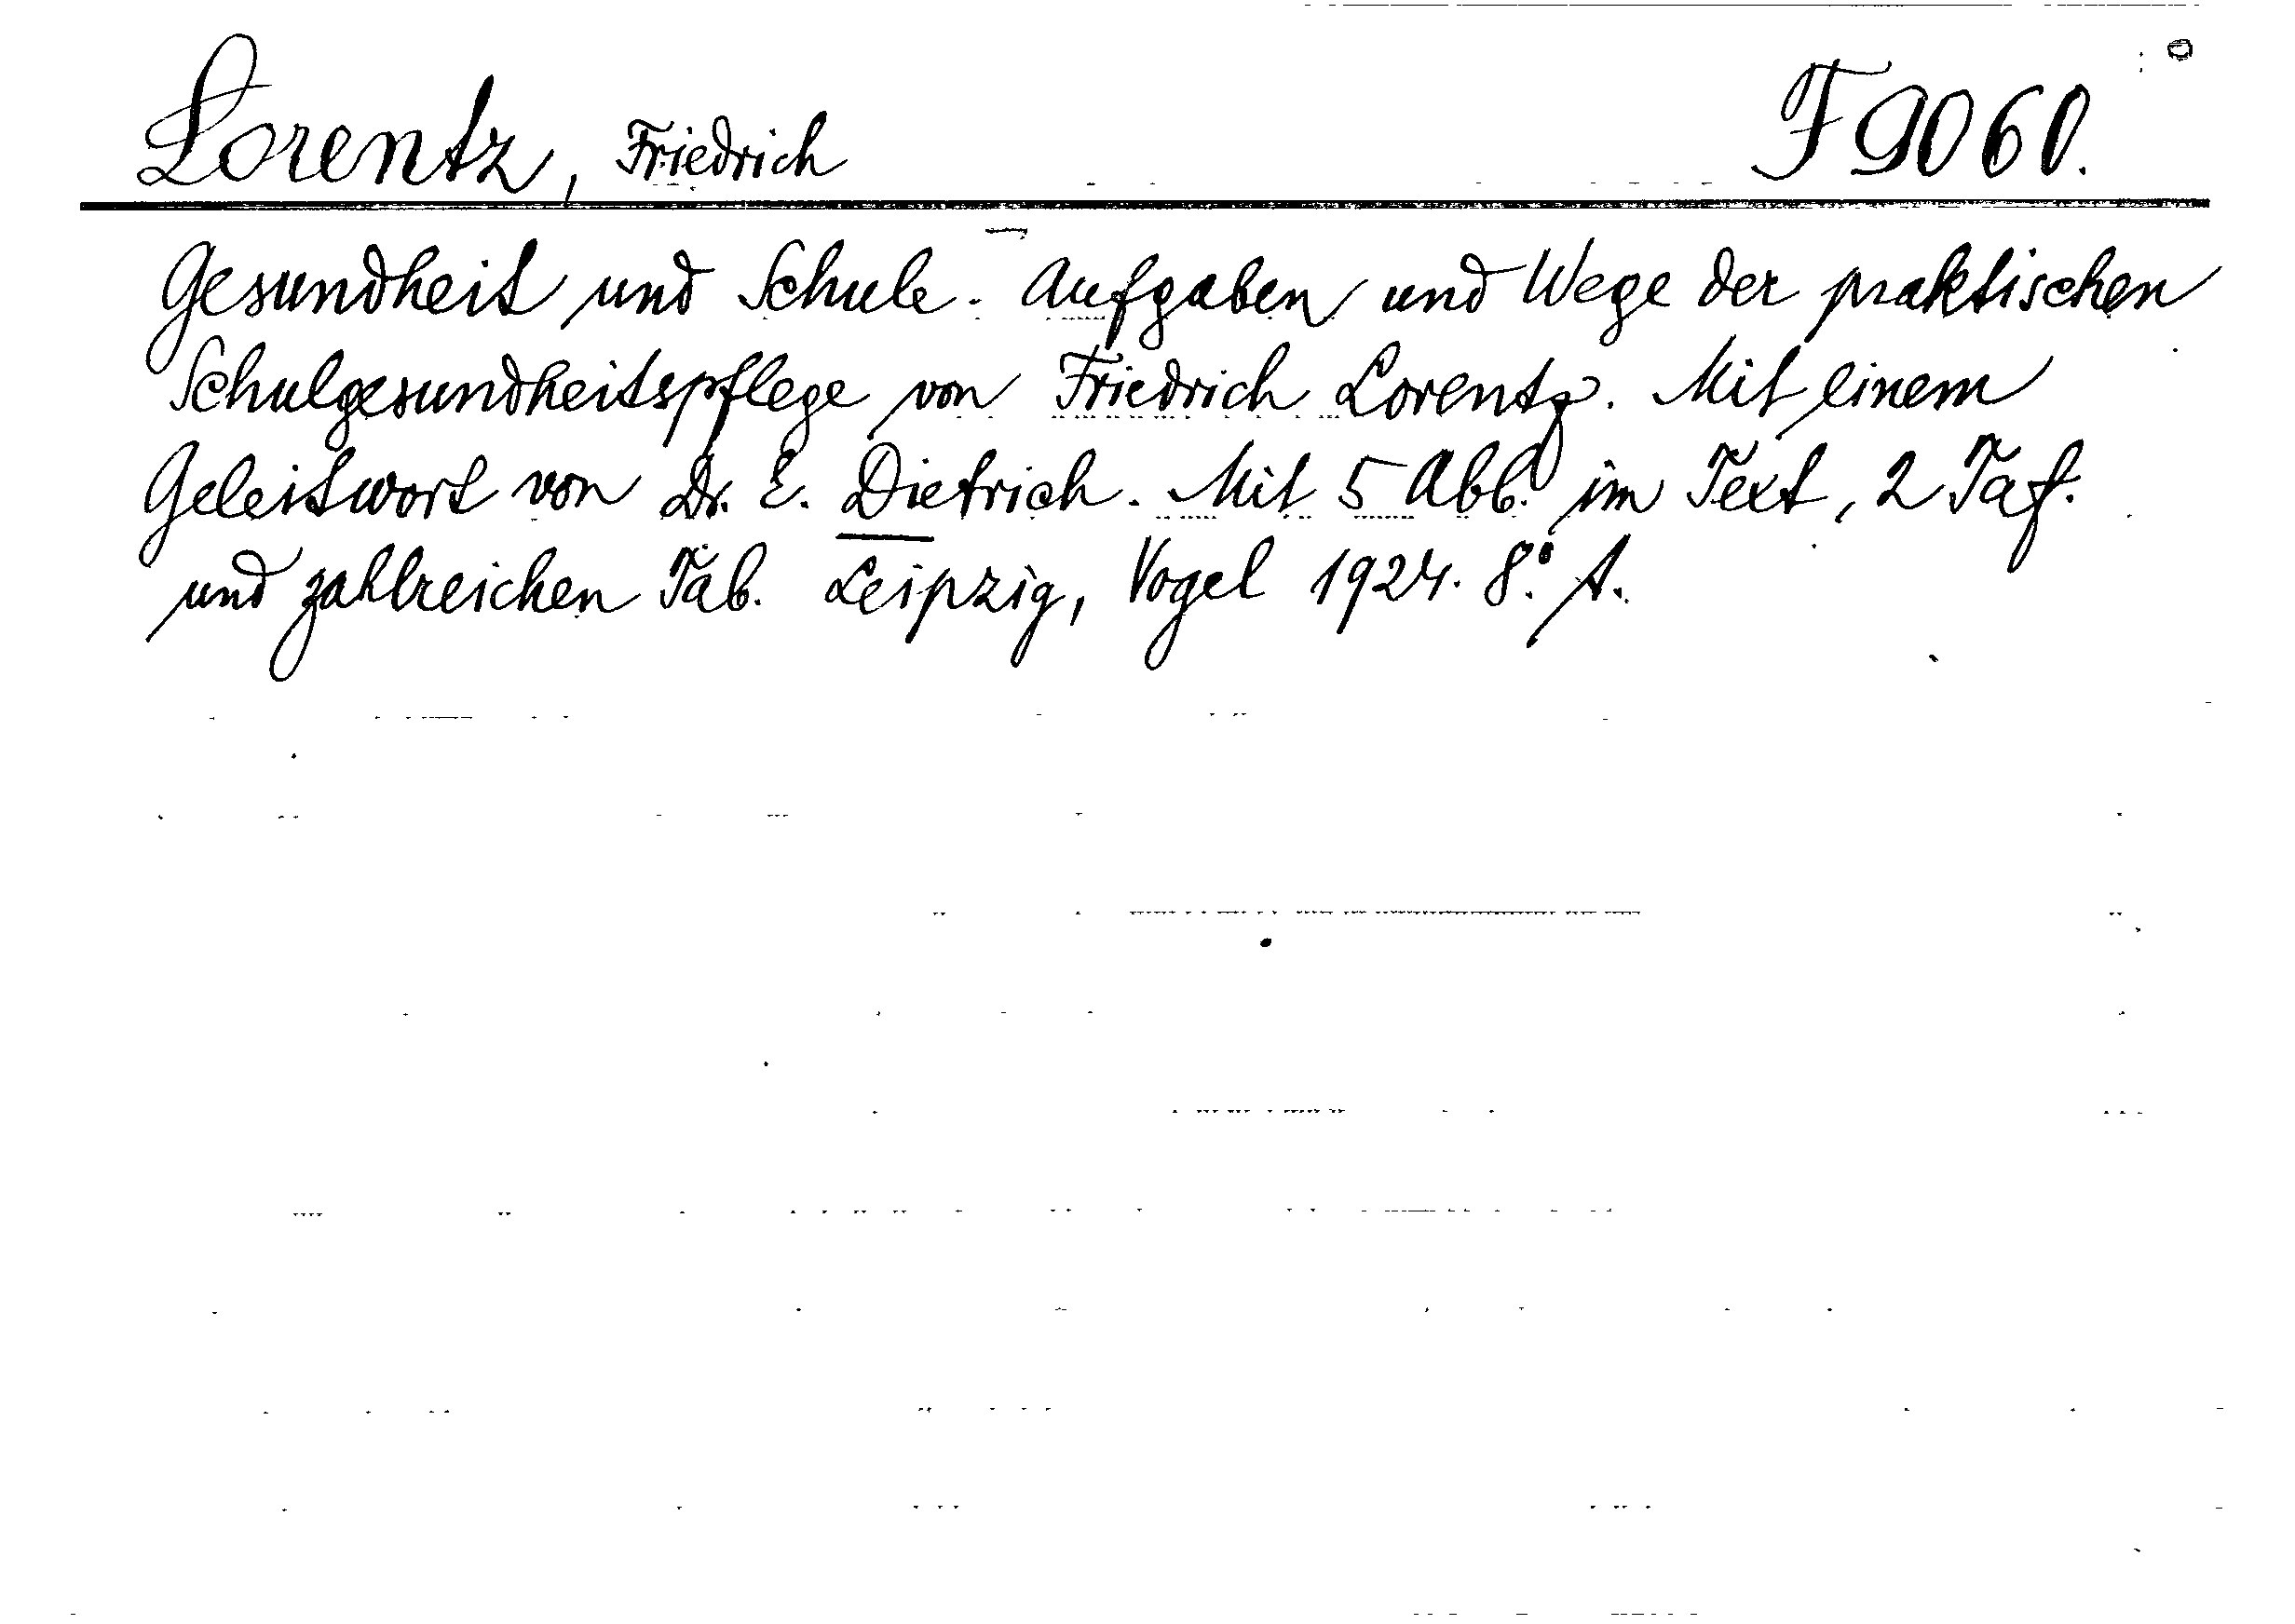 Lorentz, Friedrich F 9060.
Gesundheit und Schule. Aufgaben und Wege der praktischen
Schulgesundheitspflege von Friedrich Lorentz. Mit einem
Geleitwort von Dr. E. Dietrich. Mit 5 Abb. im Text, 2 Taf.
und zahlreichen Tab. Leipzig, Vogel 1924. 8°. A.